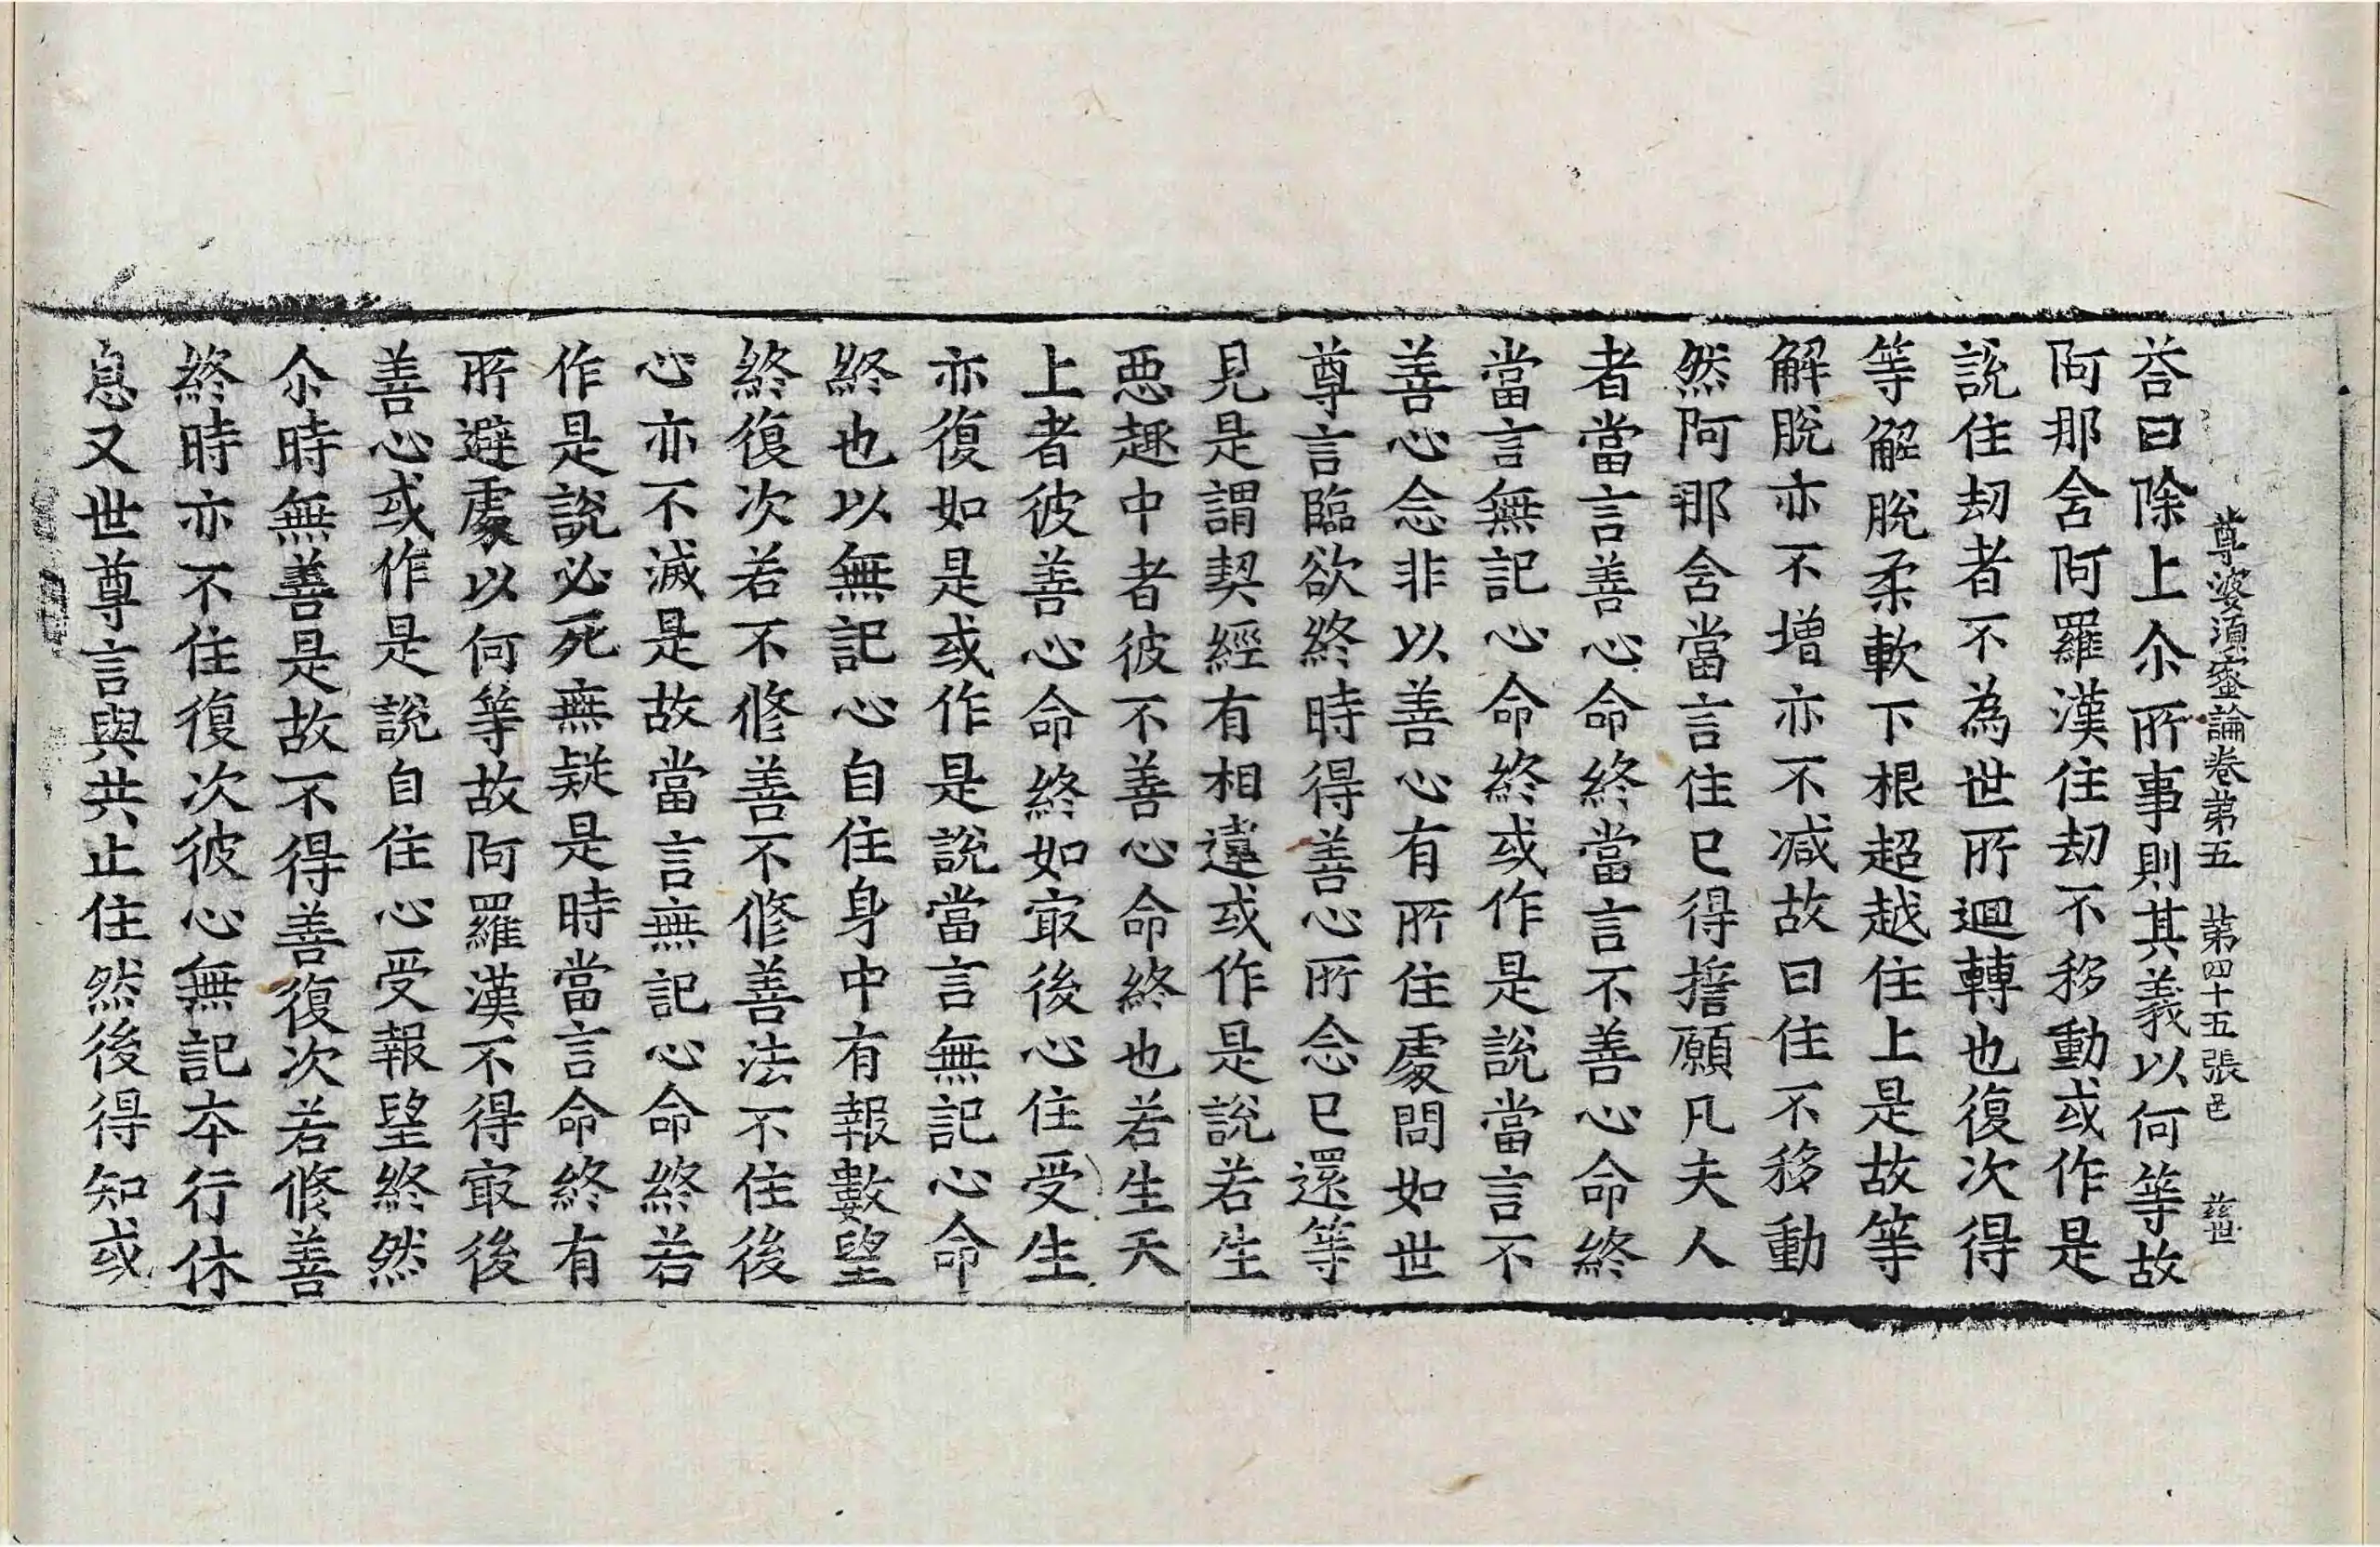 尊婆須蜜論卷苐五　苐四十五張　邑　茲世
荅曰除上尒所事則其義以何等故
阿那含阿羅漢住劫不移動或作是
說住劫者不為世所迴轉也復次得
等解脫柔軟下根超越住上是故等
解脫亦不增亦不減故曰住不移動
然阿那含當言住已得誓願凡夫人
者當言善心命終當言不善心命終
當言無記心命終或作是說當言不
善心念非以善心有所住處問如世
尊言臨欲終時得善心所念已還等
見是謂契經有相違或作是說若生
惡趣中者彼不善心命終也若生天
上者彼善心命終如㝡後心住受生
亦復如是或作是說當言無記心命
終也以無記心自住身中有報數望
終復次若不修善不修善法不住後
心亦不滅是故當言無記心命終若
作是說必死無疑是時當言命終有
所避處以何等故阿羅漢不得㝡後
善心或作是說自住心受報望終然
尒時無善是故不得善復次若修善
終時亦不住復次彼心無記本行休
息又世尊言與共止住然後得知或